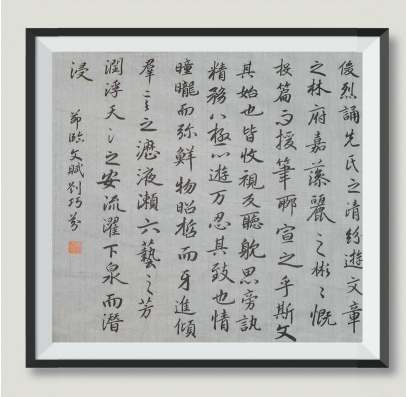 俊烈誦先氏之清紛遊文章
之林府嘉藻麗之彬〻慨
投篇而援筆聊宣之乎斯文
其始也皆收視反聽耽思旁訊
精務八極心遊万忍其致也情
瞳曨而弥鮮物昭晢而牙進傾
羣言之瀝液漱六藝之芳
潤浮天之安流濯下泉而潛
浸
節臨文賦劉巧芬